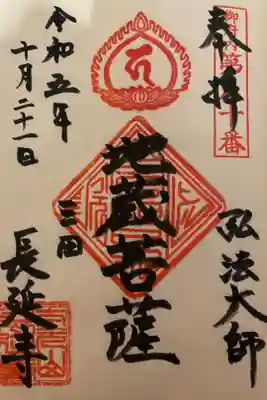 御府内第
十番
奉拝
弘法大師
地蔵菩薩
三田
長延寺
令和五年
十月二十一日